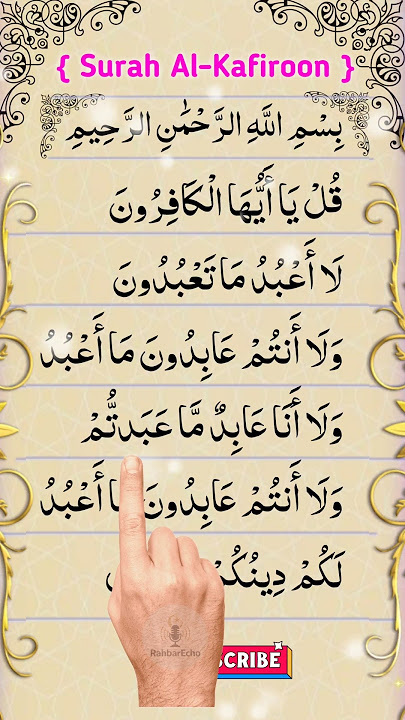 { Surah Al-Kafiroon }
بِسْمِ اللَّهِ الرَّحْمَٰنِ الرَّحِيمِ
قُلْ يَا أَيُّهَا الْكَافِرُونَ
لَا أَعْبُدُ مَا تَعْبُدُونَ
وَلَا أَنتُمْ عَابِدُونَ مَا أَعْبُدُ
وَلَا أَنَا عَابِدٌ مَّا عَبَدتُّمْ
وَلَا أَنتُمْ عَابِدُونَ أَعْبُدُ
لَكُمْ دِينُكُمْ
RahbarEcho
CRIBE